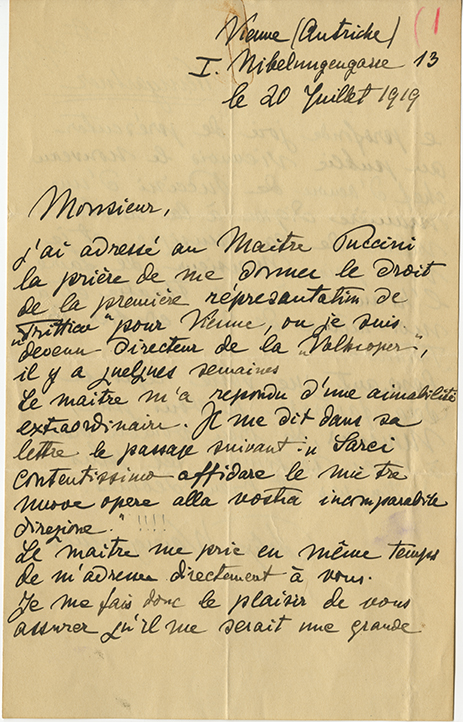 (1
Vienne (Autriche)
I. Nibelungengasse 13
le 20 Juillet 1919
Monsieur,
j'ai adressé au Maitre Puccini
la prière de me donner le droit
de la première répresantation de
„Trittico“ pour Vienne, ou je suis
devenu directeur de la „Volksoper“,
il y a quelques semaines
Le maitre m'a repondu d'une aimabilité
extraordinaire. Il me dit dans sa
lettre le passage suivant: „Sarei
contentissimo affidare le mie tre
nuove opere alla vostra incomparabile
direzione.“ !!!!
Le maitre me prie en même temps
de m'adresser directement à vous.
Je me fais donc le plaisir de vous
assurer qu'il me serait une grande